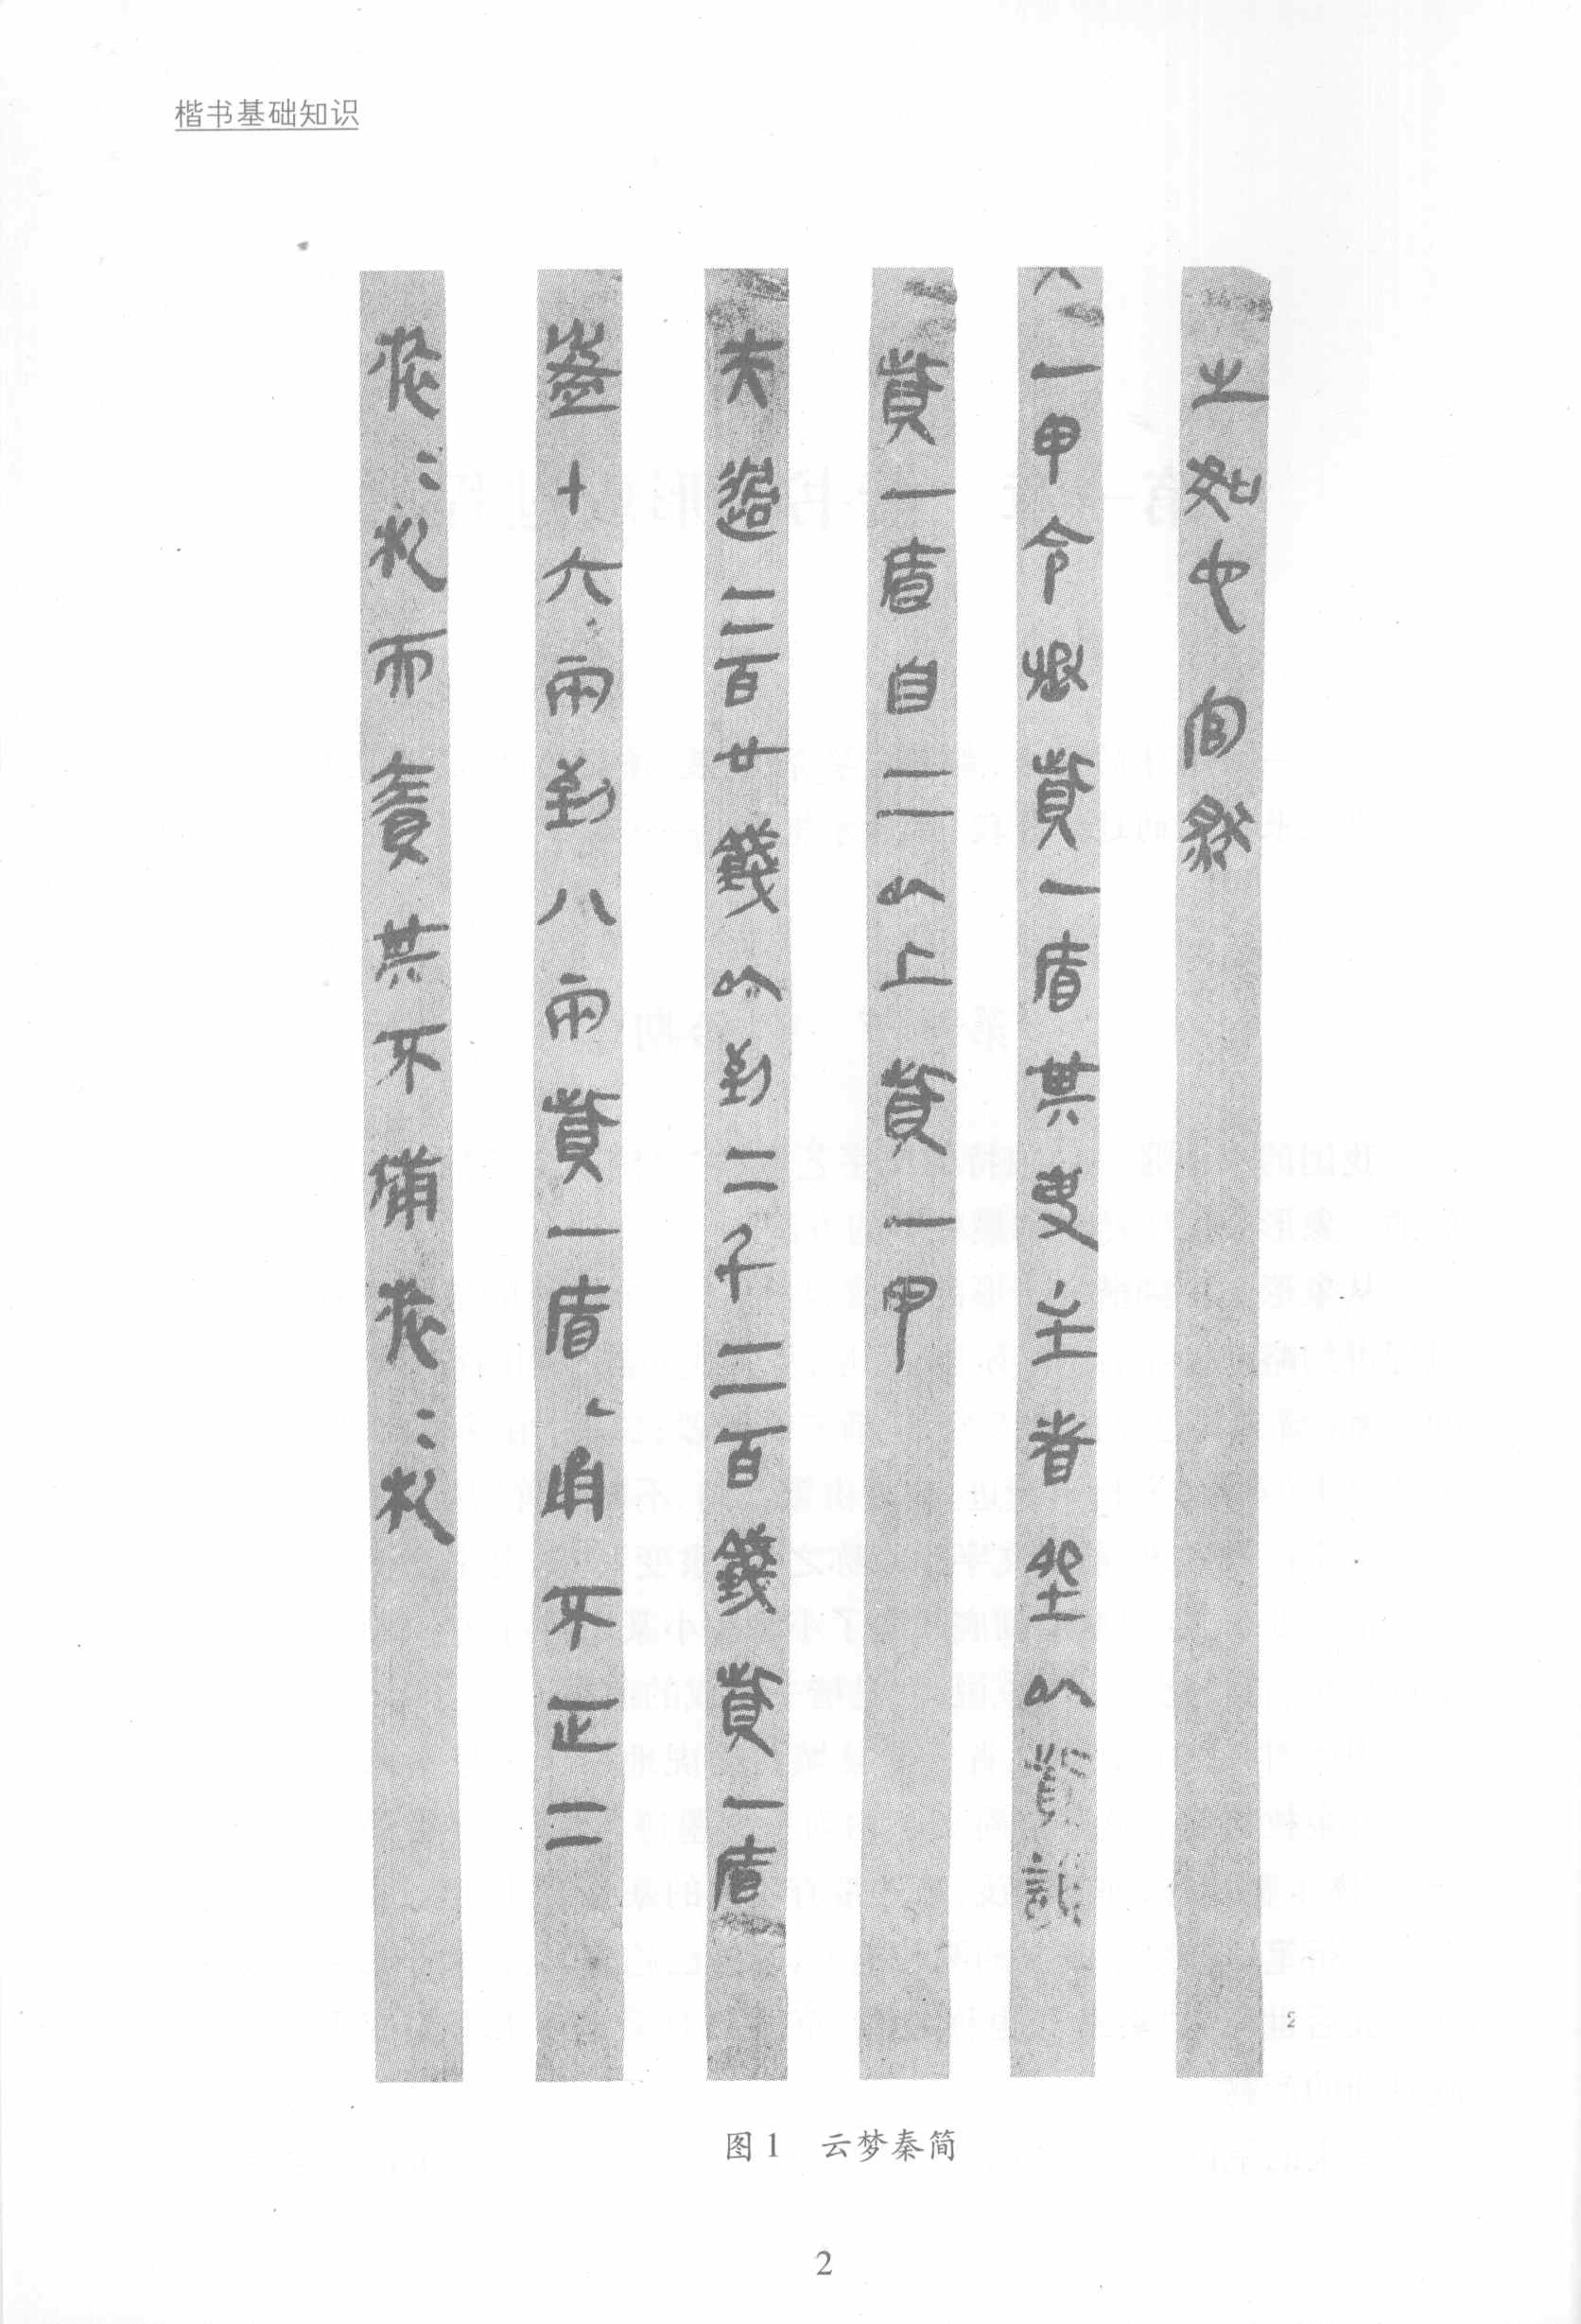 楷书基础知识
之如它官然
一甲令丞貲一盾其吏主者坐以貲誶
貲一盾自二以上貲一甲
夫過二百廿錢以到二千二百錢貲一盾
盈十六兩到八兩貲一盾甬不正二
旅=札而責其不備旅=札
图1 云梦秦简
2